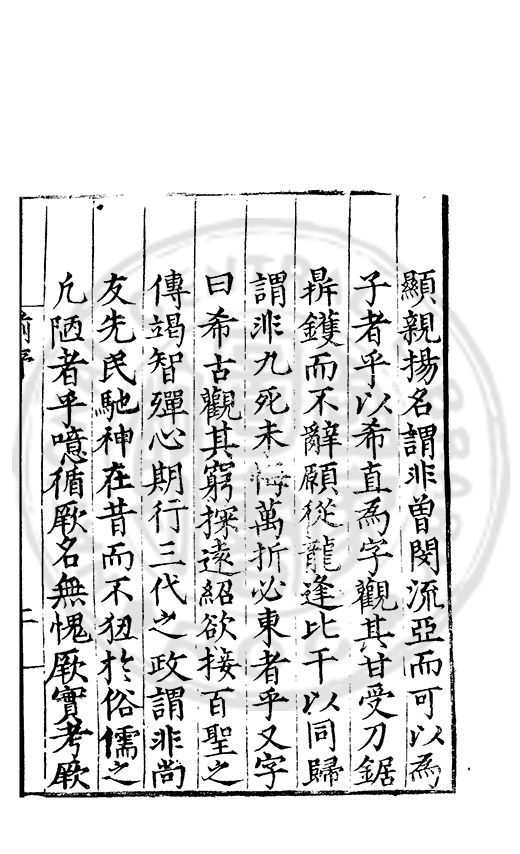 顯親揚名謂非曽閔流亞而可以為
子者乎以希直為字觀其甘受刀鋸
鼎鑊而不辭願從龍逢比干以同歸
謂非九死未悔萬折必東者乎又字
曰希古觀其窮探遠紹欲接百聖之
傳竭智殫心期行三代之政謂非尚
友先民馳神在昔而不狃於俗儒之
凢陋者乎噫循厥名無愧厥實考厥